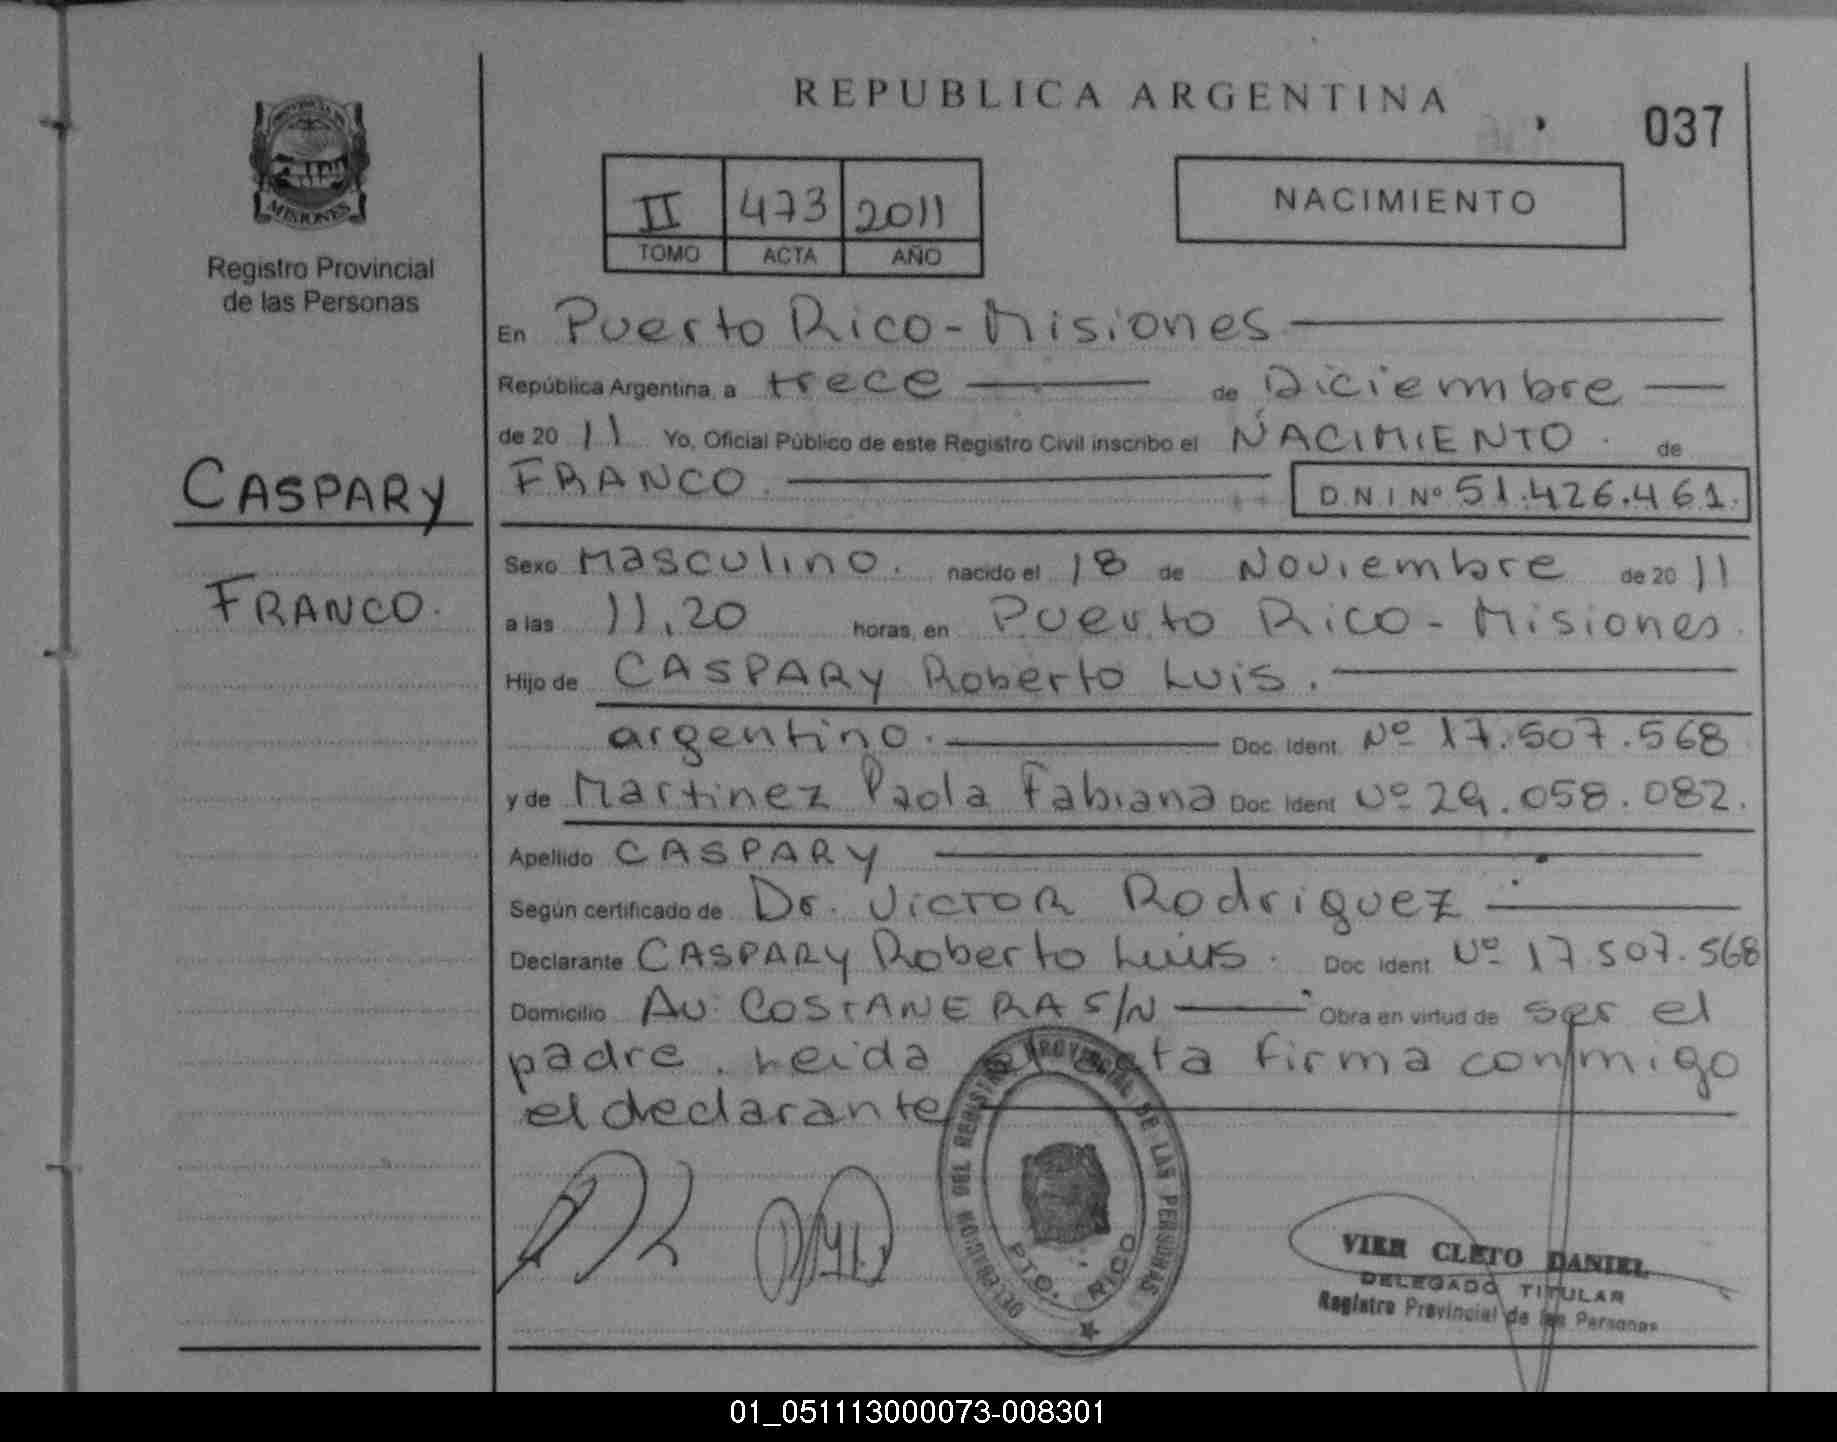 REPUBLICA ARGENTINA
037
PROVINCIA DE
MISIONES
Registro Provincial
de las Personas
II 473 2011
TOMO ACTA AÑO
NACIMIENTO
En Puerto Rico - Misiones
República Argentina, a trece de Diciembre
de 20 11 Yo, Oficial Público de este Registro Civil inscribo el NACIMIENTO. de
FRANCO. D.N.I Nº 51.426.461.
CASPARY
FRANCO.
Sexo Masculino. nacido el 18 de Noviembre de 20 11
a las 11,20 horas, en Puerto Rico - Misiones.
Hijo de CASPARY Roberto Luis.
argentino. Doc. Ident. Nº 17.507.568
y de Martinez Paola Fabiana Doc. Ident. Nº 29.058.082.
Apellido CASPARY
Según certificado de Dr. Victor Rodriguez
Declarante CASPARY Roberto Luis. Doc. Ident. Nº 17.507.568
Domicilio Av. COSTANERA S/N Obra en virtud de ser el
padre. Leida el acta firma conmigo
el declarante
DELEGACION DEL REGISTRO PROVINCIAL DE LAS PERSONAS
PTO. RICO
VIER CLETO DANIEL
DELEGADO TITULAR
Registro Provincial de las Personas
01_051113000073-008301